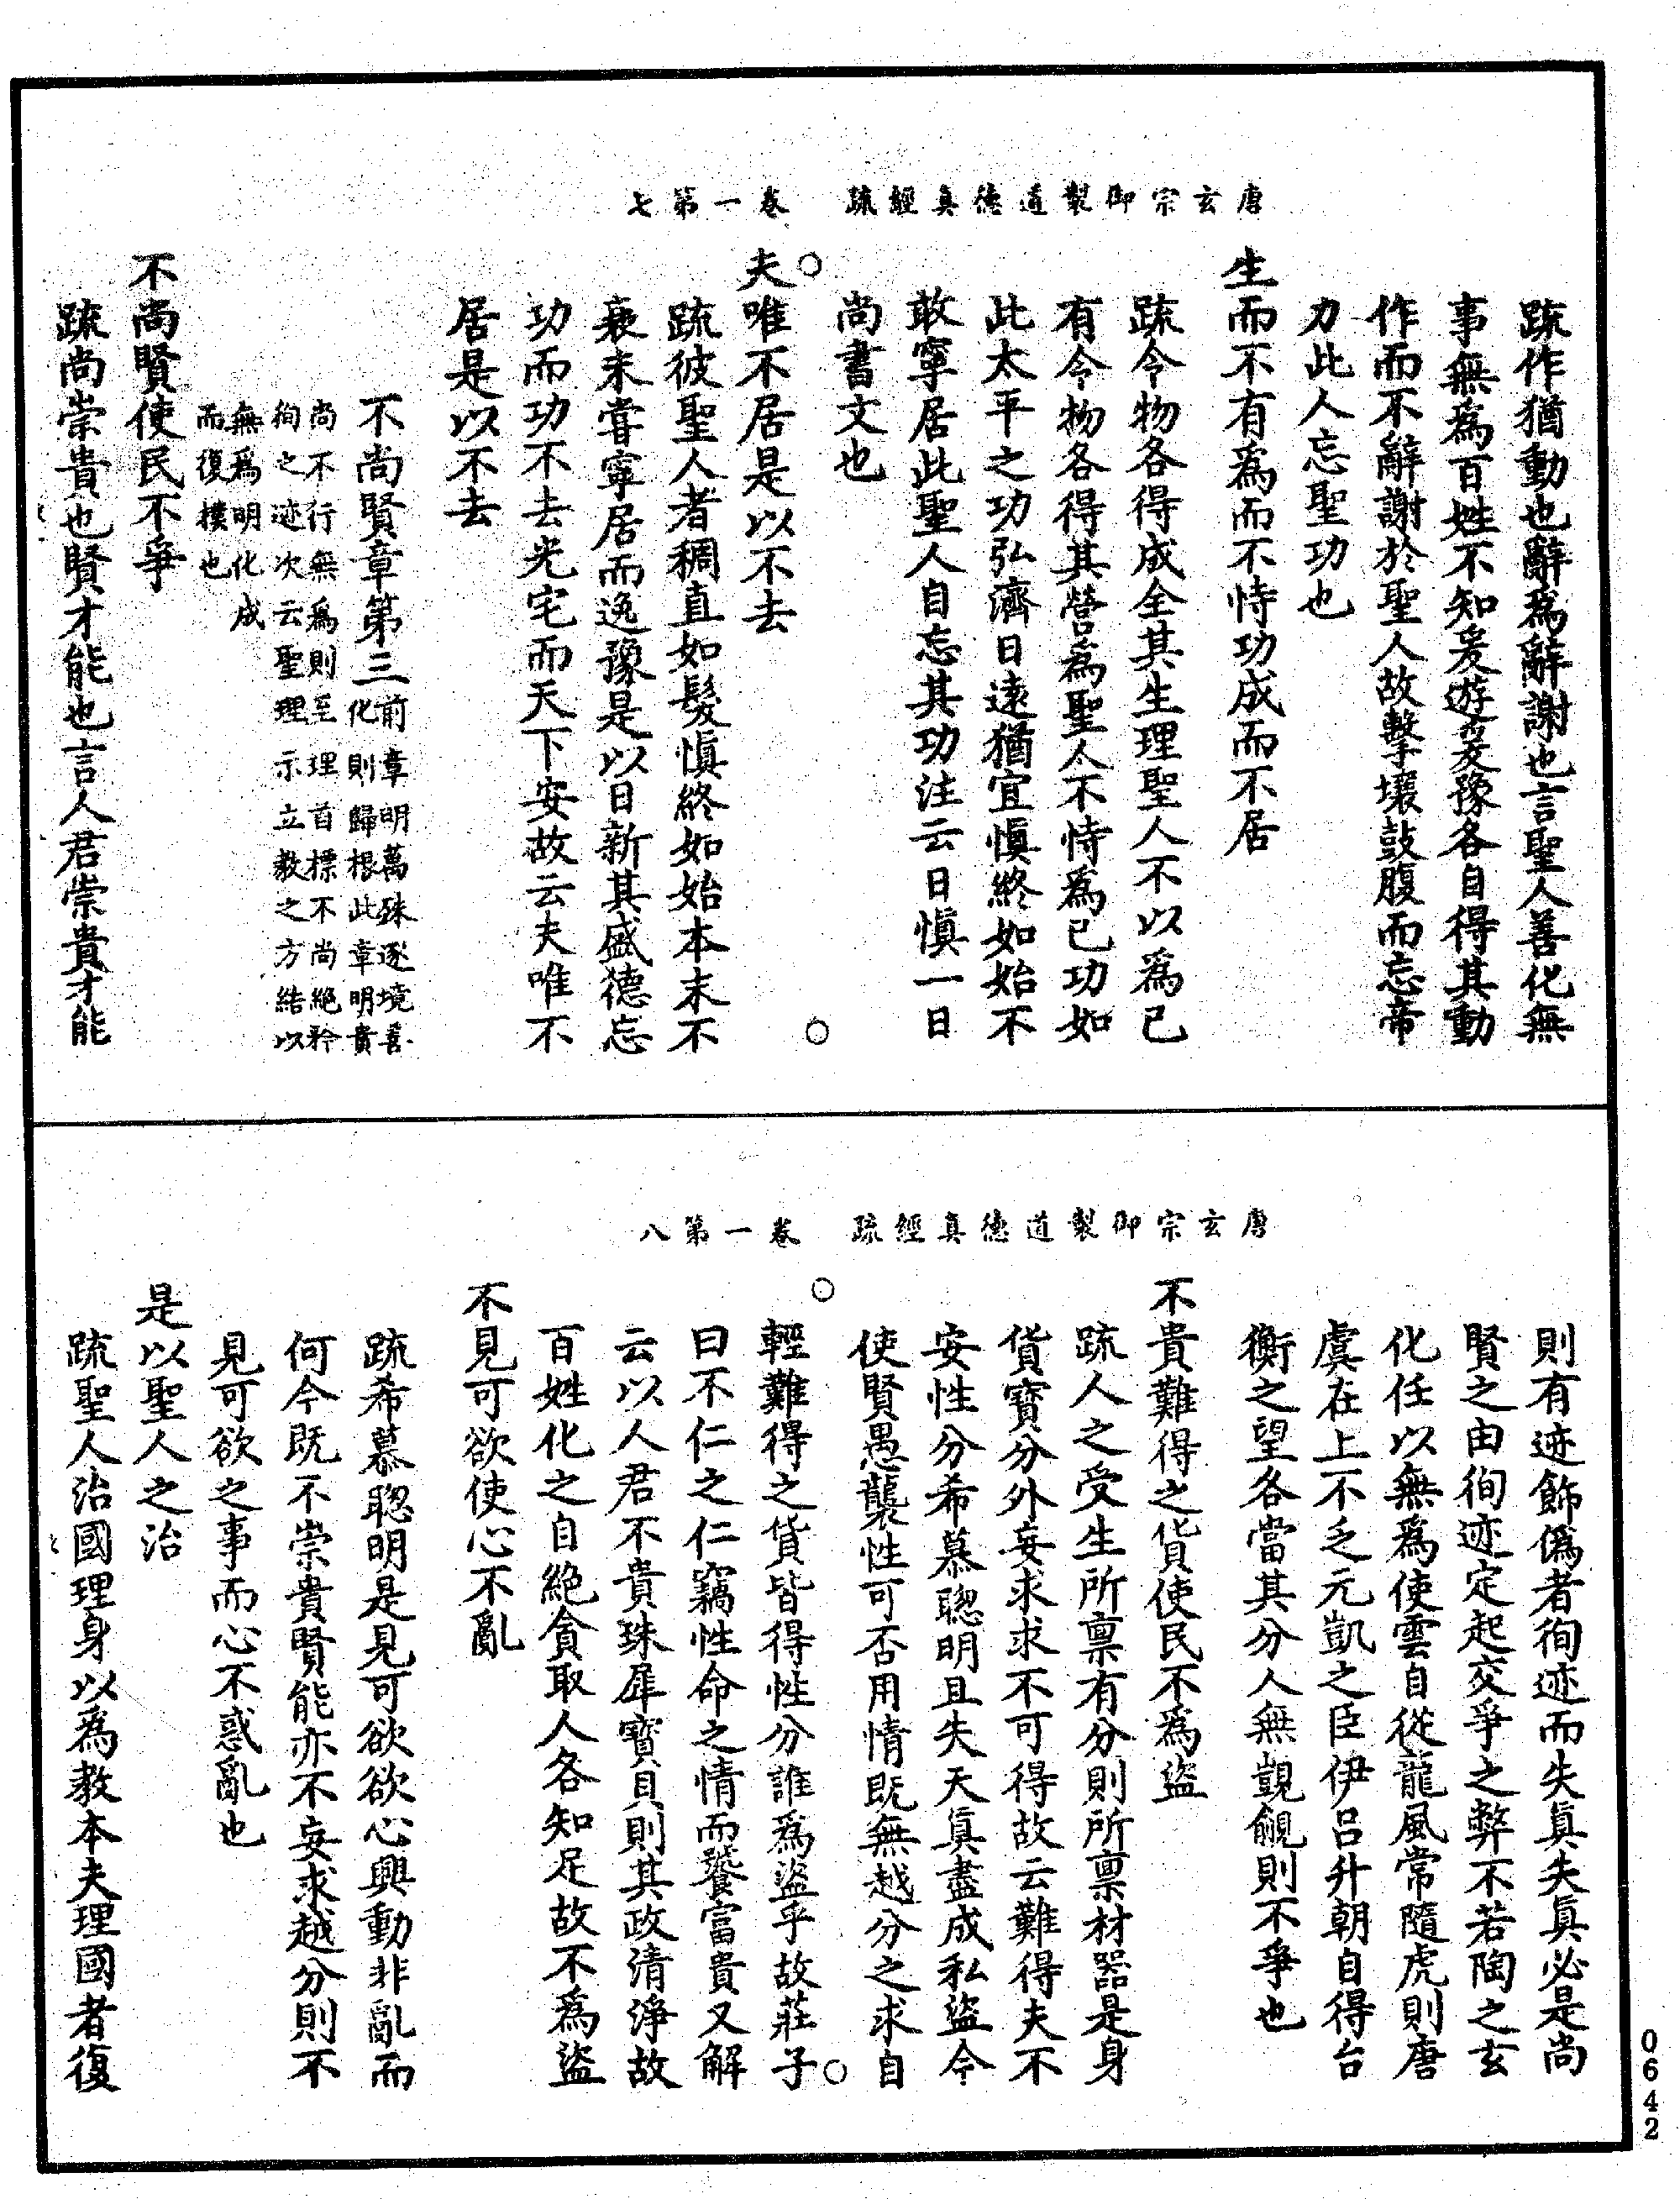 唐玄宗御製道德真經疏　卷一第七
疏作猶動也辭爲辭謝也言聖人善化無
事無爲百姓不知爰遊爰豫各自得其動
作而不辭謝於聖人故擊壤鼓腹而忘帝
力此人忘聖功也
生而不有爲而不恃功成而不居
疏令物各得成全其生理聖人不以爲己
有令物各得其營爲聖人不恃爲己功如
此太平之功弘濟日遠猶宜慎終如始不
敢寧居此聖人自忘其功注云日慎一日
尚書文也
夫唯不居是以不去
疏彼聖人者稠直如髮慎終如始本末不
衰未嘗寧居而逸豫是以日新其盛德忘
功而功不去光宅而天下安故云夫唯不
居是以不去
不尚賢章第三前章明萬殊逐境善
化則歸根此章明貴
尚不行無爲則至理首標不尚絕矜
徇之迹次云聖理示立教之方結以
無爲明化成
而復樸也
不尚賢使民不爭
疏尚崇貴也賢才能也言人君崇貴才能
唐玄宗御製道德真經疏　卷一第八
則有迹飾僞者徇迹而失真失真必是尚
賢之由徇迹定起交爭之弊不若陶之玄
化任以無爲使雲自從龍風常隨虎則唐
虞在上不乏元凱之臣伊呂升朝自得台
衡之望各當其分人無覬覦則不爭也
不貴難得之貨使民不爲盜
疏人之受生所禀有分則所禀材器是身
貨寶分外妄求求不可得故云難得夫不
安性分希慕聰明且失天真盡成私盜今
使賢愚襲性可否用情既無越分之求自
輕難得之貨皆得性分誰爲盜乎故莊子
曰不仁之仁竊性命之情而饕富貴又解
云以人君不貴珠犀寶貝則其政清淨故
百姓化之自絕貪取人各知足故不爲盜
不見可欲使心不亂
疏希慕聰明是見可欲欲心興動非亂而
何今既不崇貴賢能亦不妄求越分則不
見可欲之事而心不惑亂也
是以聖人之治
疏聖人治國理身以爲教本夫理國者復
0642